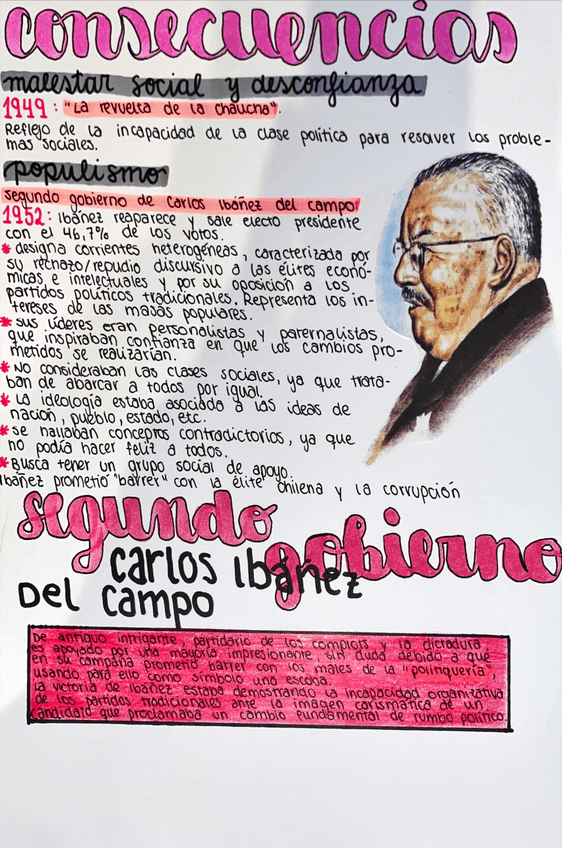 consecuencias
malestar social y desconfianza
1949: "La revuelta de la chaucha".
Reflejo de la incapacidad de la clase política para resolver los proble-
mas sociales.
populismo
segundo gobierno de Carlos Ibáñez del campo
1952: Ibáñez reaparece y sale electo presidente
con el 46,7% de los votos.
* designa corrientes heterogéneas, caracterizada por
su rechazo/repudio discursivo a las élites econó-
micas e intelectuales y por su oposición a los
partidos políticos tradicionales. Representa los in-
tereses de las masas populares.
* sus líderes eran personalistas y paternalistas,
que inspiraban confianza en que los cambios pro-
metidos se realizarían.
* No consideraban las clases sociales, ya que trata-
ban de abarcar a todos por igual.
* La ideología estaba asociada a las ideas de
nación, pueblo, estado, etc.
* se hallaban conceptos contradictorios, ya que
no podía hacer feliz a todos.
* Busca tener un grupo social de apoyo.
Ibáñez prometió "barrer" con la élite chilena y la corrupción
segundo
gobierno
Carlos Ibáñez
Del Campo
De antiguo intrigante, partidario de los complots y la dictadura,
es apoyado por una mayoría impresionante, sin duda debido a que
en su campaña prometió barrer con los males de la "politiquería",
usando para ello como símbolo una escoba.
La victoria de Ibáñez estaba demostrando la incapacidad organizativa
de los partidos tradicionales ante la imagen carismática de un
candidato que proclamaba un cambio fundamental de rumbo político.